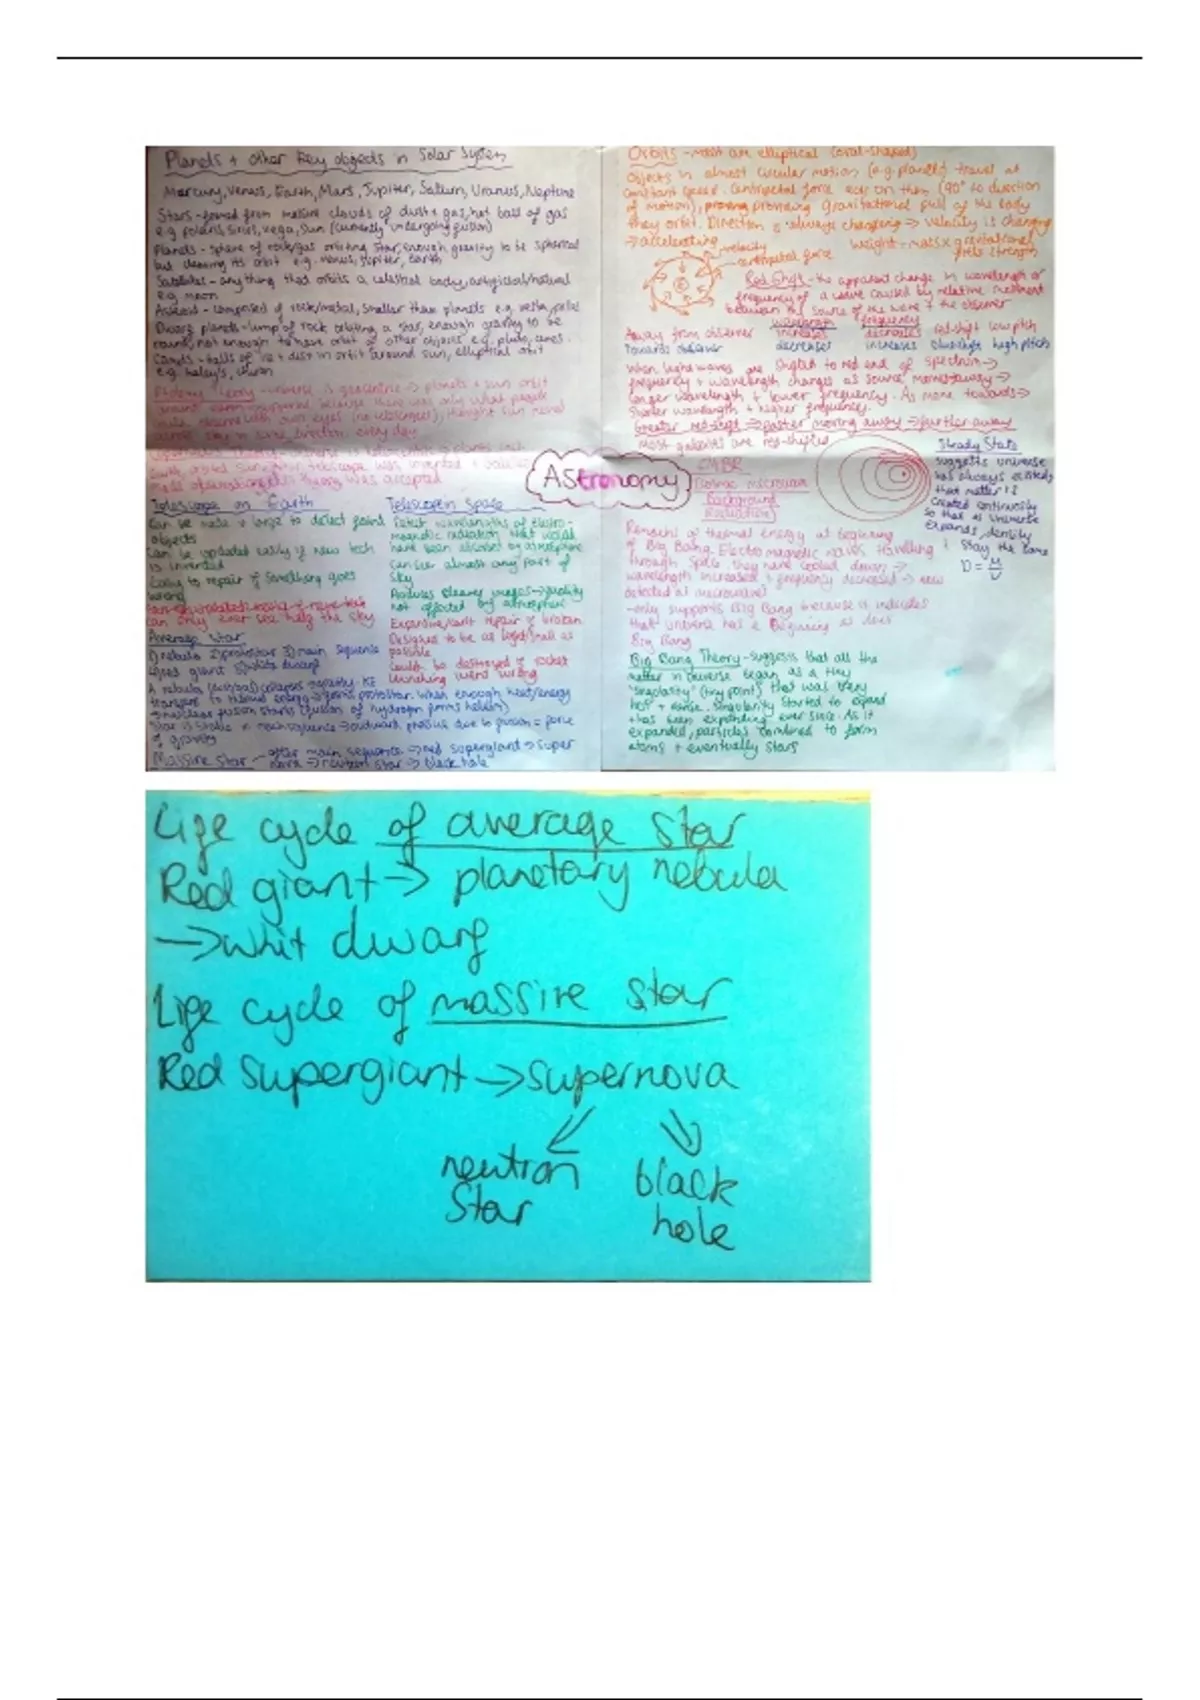 Planets + other key objects in Solar System
Mercury, Venus, Earth, Mars, Jupiter, Saturn, Uranus, Neptune
Stars - formed from massive clouds of dust + gas, hot ball of gas
e.g. polaris, Sirius, vega, Sun (currently undergoing fusion)
Planets - sphere of rock/gas orbiting star, enough gravity to be spherical
but clearing its orbit e.g. Venus, Jupiter, Earth
Satellites - anything that orbits a celestial body, artificial/natural
e.g. moon
composed of rock/metal, smaller than planets e.g. vesta,
Dwarf planets - lump of rock orbiting a star, enough gravity to be
round, not enough to have orbit of other objects e.g. pluto, ceres.
balls of ice + dust in orbit around sun, elliptical orbit
e.g. halley's,
Ptolemy Theory - universe is geocentric → planets + sun orbit
because there was only what people
own eyes (no telescopes), thought sun moved
every day
telescope was invented +
theory was accepted
Telescope on Earth
Can be made v large to detect faint
objects
Can be updated easily if new tech
is invented
Easy to repair if something goes
wrong
can only ever see half the sky
Telescope in Space
Detect wavelengths of electro-
magnetic radiation that would
have been absorbed by atmosphere
Can see almost any part of
sky
Produces clearer images → quality
not affected by atmosphere
Expensive/can't repair if broken
Designed to be as light/small as
possible
Could be destroyed if rocket
launching went wrong
Average star
1) nebula 2) protostar 3) main sequence
4) red giant 5) white dwarf
A nebula (dust/gas) collapses → gravity. KE
transfers to thermal energy → forms protostar. When enough heat/energy
→ nuclear fusion starts (fusion of hydrogen forms helium)
Star is stable in main sequence → outward pressure due to fusion = force
of gravity
Massive star - after main sequence → red supergiant → super
nova → neutron star → black hole
Astronomy
Orbits - most are elliptical (oval-shaped)
Objects in almost circular motion (e.g. planets) travel at
constant speed. Centripetal force acts on them (90° to direction
of motion), providing gravitational pull of the body
they orbit. Direction is always changing → velocity is changing
→ accelerating
velocity
centripetal force
weight = mass x gravitational
field strength
Red Shift - the apparent change in wavelength or
frequency of a wave caused by relative movement
between the source of the wave + the observer
wavelength frequency
Away from observer increases decreases red-shift low pitch
Towards observer decreases increases blue-shift high pitch
When light waves are shifted to red end of spectrum →
frequency + wavelength changes as source moves away →
longer wavelength + lower frequency. As move towards →
Shorter wavelength + higher frequency.
Greater red-shift → faster moving away → further away
most galaxies are red-shifted
CMBR
Cosmic microwave
Background
Radiation
Remnant of thermal energy at beginning
of Big Bang. Electromagnetic waves travelling
through space, they have cooled down →
wavelength increased + frequency decreased → now
detected as microwaves
- only supports Big Bang because it indicates
that universe has a beginning as does
Big Bang
Big Bang Theory - suggests that all the
matter in universe began as a tiny
"singularity" (tiny point) that was very
hot + dense. Singularity started to expand
+ has been expanding ever since. As it
expanded, particles combined to form
atoms + eventually stars
Steady State
suggests universe
has always existed,
that matter is
created continuously
so that as universe
expands, density
stay the same
D = M/V
Life cycle of average star
Red giant → planetary nebula
→ whit dwarf
Life cycle of massive star
Red supergiant → supernova
neutron black
Star hole